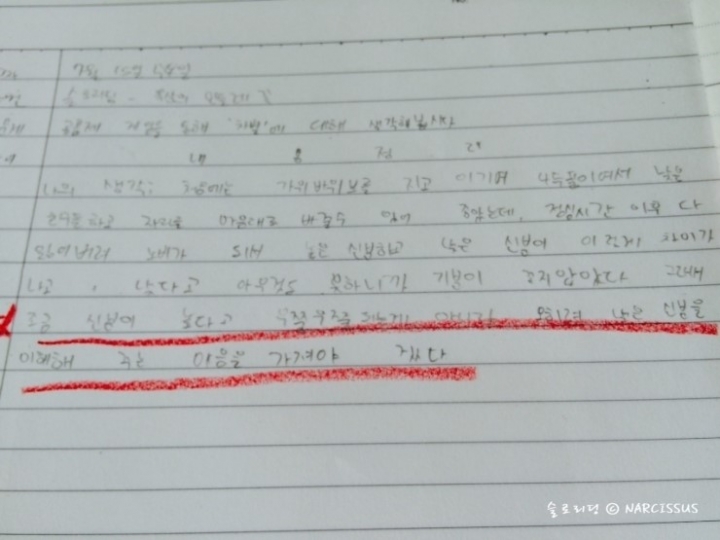 7월 15일 수요일
슬로리딩 -
게임을 통해 '차별'에 대해 생각해봅시다
내 용 정 리
나의 생각: 처음에는 가위바위보를 하고 이기며 낮은
자리를 마음대로 바꿀수 있어 좋았는데, 점심시간 이후 다
내가 되서 높은 신분하고 낮은 신분이 이렇게 차이가
나고, 낮다고 아무것도 못하니깐 기분이 좋지않았다 그래서
조금 신분이 높다고 우쭐우쭐 아니라 오히려 낮은 신분을
이해해 주는 마음을 가져야 겠다
슬로리딩 © NARCISSUS